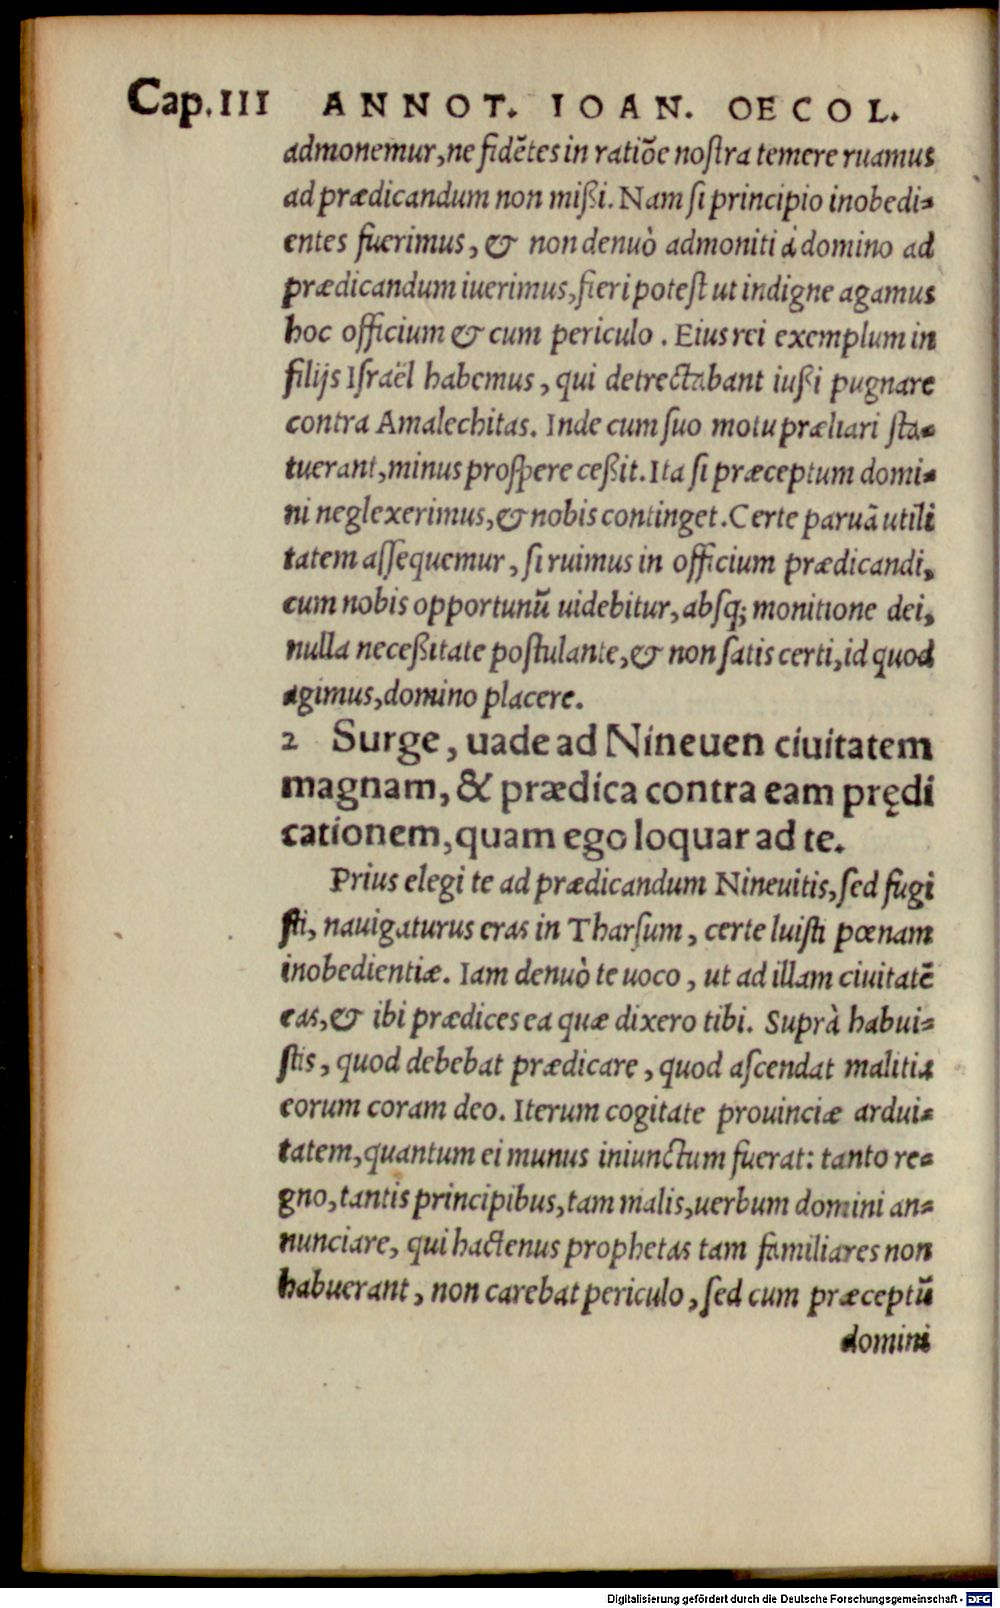 Cap.III ANNOT. IOAN. OECOL.
admonemur,ne fidẽtes in ratiõe noſtra temere ruamus
ad prædicandum non mißi. Nam ſi principio inobedi⸗
entes fuerimus, & non denuò admoniti à domino ad
prædicandum iuerimus,fieri poteſt ut indigne agamus
hoc officium & cum periculo . Eius rei exemplum in
filijs Iſraël habemus , qui detrectabant iußi pugnare
contra Amalechitas. Inde cum ſuo motu præliari ſta⸗
tuerant,minus proſpere ceßit. Ita ſi præceptum domi⸗
ni neglexerimus,& nobis continget. Certe paruã utili
tatem aſſequemur , ſi ruimus in officium prædicandi,
cum nobis opportunũ uidebitur,abſq; monitione dei,
nulla neceßitate poſtulante,& non ſatis certi,id quod
agimus,domino placere.
2 Surge, uade ad Nineuen ciuitatem
magnam, & prædica contra eam prędi
cationem,quam ego loquar ad te.
Prius elegi te ad prædicandum Nineuitis,ſed fugi
ſti, nauigaturus eras in Tharſum , certe luiſti pœnam
inobedientiæ. Iam denuò te uoco , ut ad illam ciuitatẽ
eas,& ibi prædices ea quæ dixero tibi. Suprà habui⸗
ſtis , quod debebat prædicare , quod aſcendat malitia
eorum coram deo. Iterum cogitate prouinciæ ardui⸗
tatem,quantum ei munus iniunctum fuerat: tanto re⸗
gno,tantis principibus,tam malis,uerbum domini an⸗
nunciare, qui hactenus prophetas tam familiares non
habuerant , non carebat periculo , ſed cum præceptũ
domini
Digitalisierung gefördert durch die Deutsche Forschungsgemeinschaft - DFG